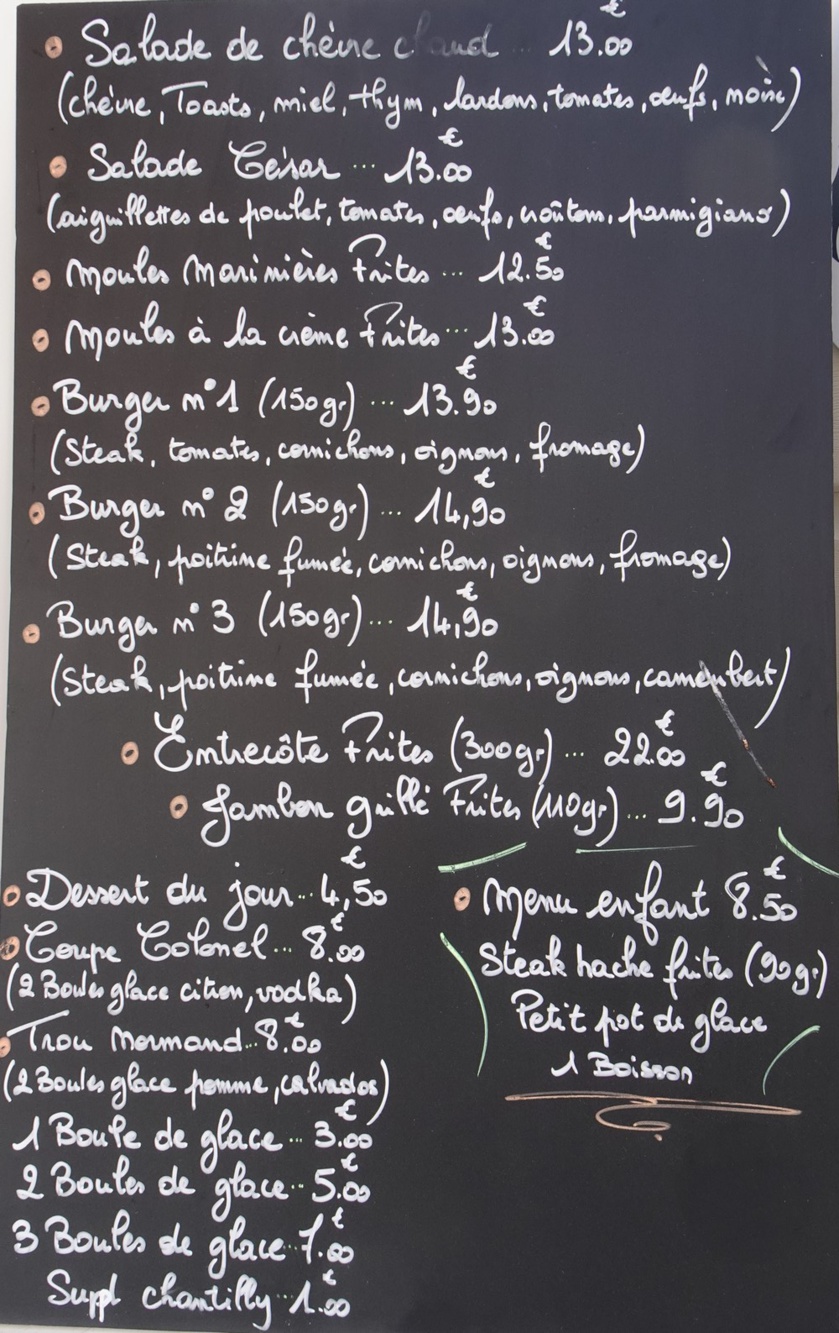 Salade de chèvre chaud ... 13.00€
(chèvre, Toasts, miel, thym, lardons, tomates, œufs, noix)
Salade César ... 13.00€
(aiguillettes de poulet, tomates, œufs, croûtons, parmigiano)
Moules Marinières Frites ... 12.50€
Moules à la crème Frites ... 13.00€
Burger n°1 (150gr) ... 13.90€
(Steak, tomates, cornichons, oignons, fromage)
Burger n°2 (150gr) ... 14,90€
(Steak, poitrine fumée, cornichons, oignons, fromage)
Burger n°3 (150gr) ... 14,90€
(Steak, poitrine fumée, cornichons, oignons, camembert)
Entrecôte Frites (300gr) ... 22.00€
Jambon grillé Frites (110gr) ... 9.90€
Dessert du jour ... 4,50€
Coupe Colonel ... 8.00€
(2 Boules glace citron, vodka)
Trou Normand ... 8.00€
(2 Boules glace pomme, calvados)
1 Boule de glace ... 3.00€
2 Boules de glace ... 5.00€
3 Boules de glace ... 7.00€
Suppl chantilly 1.00€
Menu enfant 8.50€
Steak hache frites (90gr)
Petit pot de glace
1 Boisson